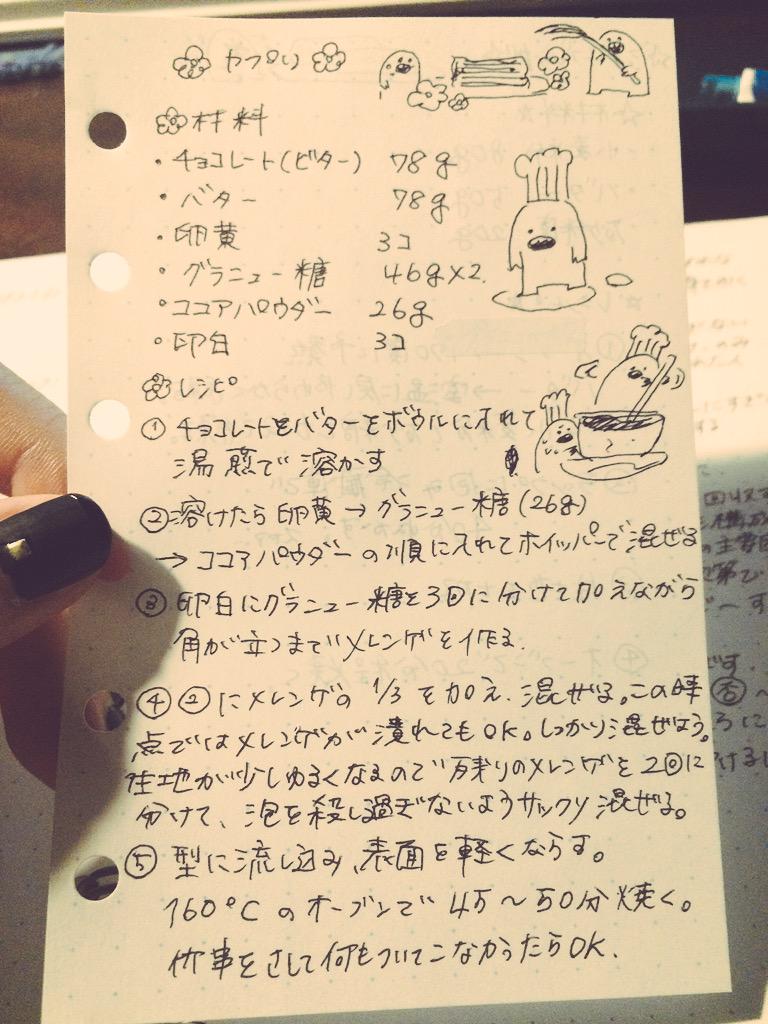 カプリ
材料
・チョコレート(ビター) 78g
・バター 78g
・卵黄 3コ
・グラニュー糖 46g×2
・ココアパウダー 26g
・卵白 3コ
レシピ
① チョコレートをバターをボウルに入れて
湯煎で溶かす
②溶けたら卵黄→グラニュー糖(26g)
→ココアパウダーの順に入れてホイッパーで混ぜる
③ 卵白にグラニュー糖を3回に分けて加えながら
角が立つまでメレンゲを作る.
④ ②にメレンゲの1/3を加え、混ぜる。この時
点ではメレンゲが潰れてもOK。しっかり混ぜよう。
生地が少しゆるくなるので残りのメレンゲを2回に
分けて、泡を殺し過ぎないようサックリ混ぜる。
⑤ 型に流し込み、表面を軽くならす。
160°Cのオーブンで45〜50分焼く。
竹串をさして何もついてこなかったらOK.